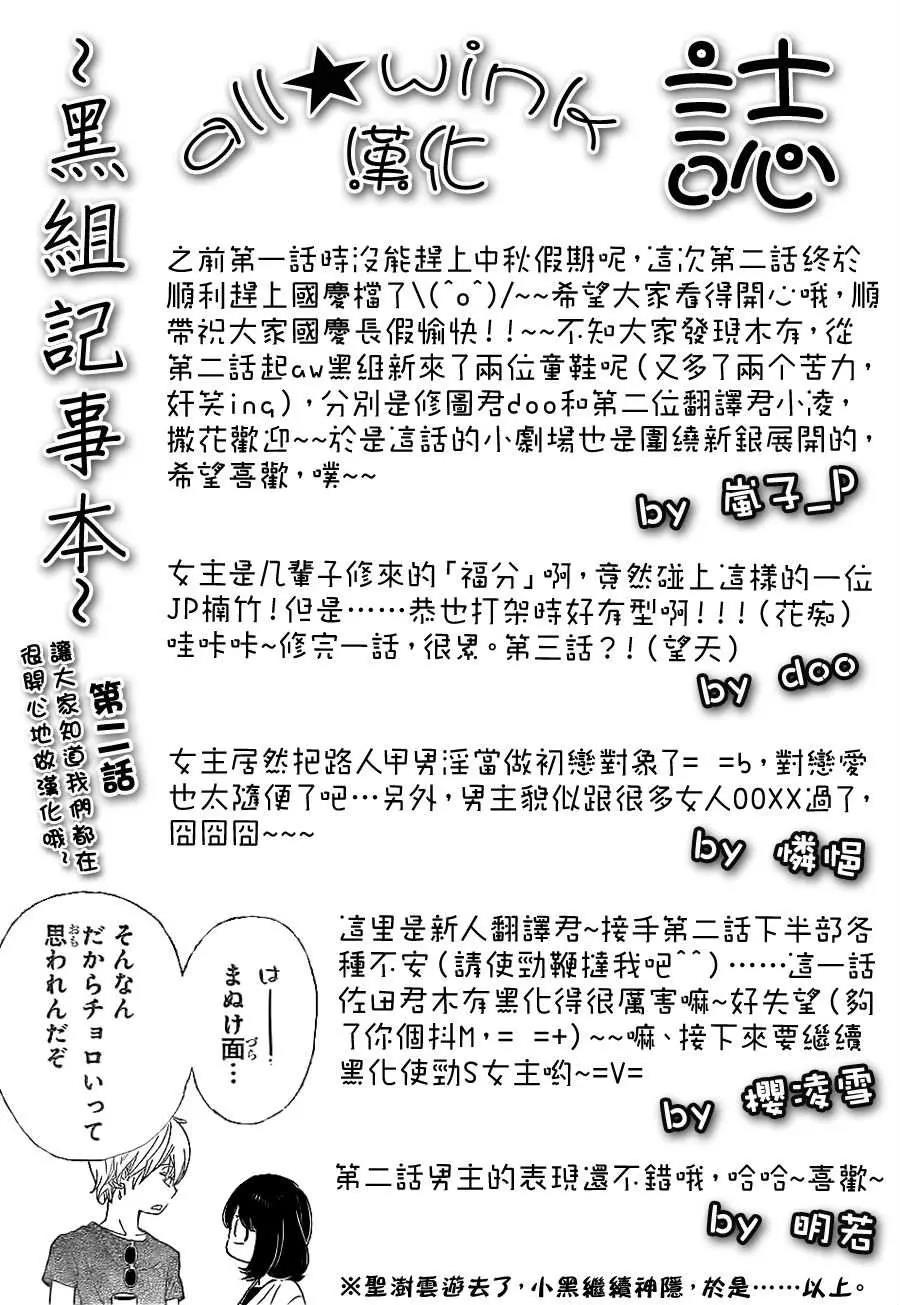 ~黑組記事本~
第二話
讓大家知道我們都在
很開心地做漢化哦~
all★wink
漢化
誌
之前第一話時沒能趕上中秋假期呢,這次第二話終於
順利趕上國慶檔了\(^o^)/~~希望大家看得開心哦,順
帶祝大家國慶長假愉快!!~~不知大家發現木有,從
第二話起aw黑组新來了兩位童鞋呢(又多了兩个苦力,
奸笑ing),分別是修圖君doo和第二位翻譯君小凌,
撒花歡迎~~於是這話的小劇場也是圍繞新銀展開的,
希望喜歡,噗~~
by 嵐子_P
女主是几輩子修來的「福分」啊,竟然碰上這樣的一位
JP楠竹!但是……恭也打架時好有型啊!!!(花痴)
哇咔咔~修完一話,很累。第三話?!(望天)
by doo
女主居然把路人甲男淫當做初戀對象了= =b,對戀愛
也太隨便了吧…另外,男主貌似跟很多女人OOXX過了,
囧囧囧~~~
by 憐悒
這里是新人翻譯君~接手第二話下半部各
種不安(請使勁鞭撻我吧^^)……這一話
佐田君木有黑化得很厲害嘛~好失望(夠
了你個抖M,= =+)~~嘛、接下來要繼續
黑化使勁S女主喲~=V=
by 櫻凌雪
第二話男主的表現還不錯哦,哈哈~喜歡~
by 明若
※聖澍雲遊去了,小黑繼續神隱,於是……以上。
はーーー!
まぬけ面づら…
そんなん
だからチョロいって
思おもわれんだぞ